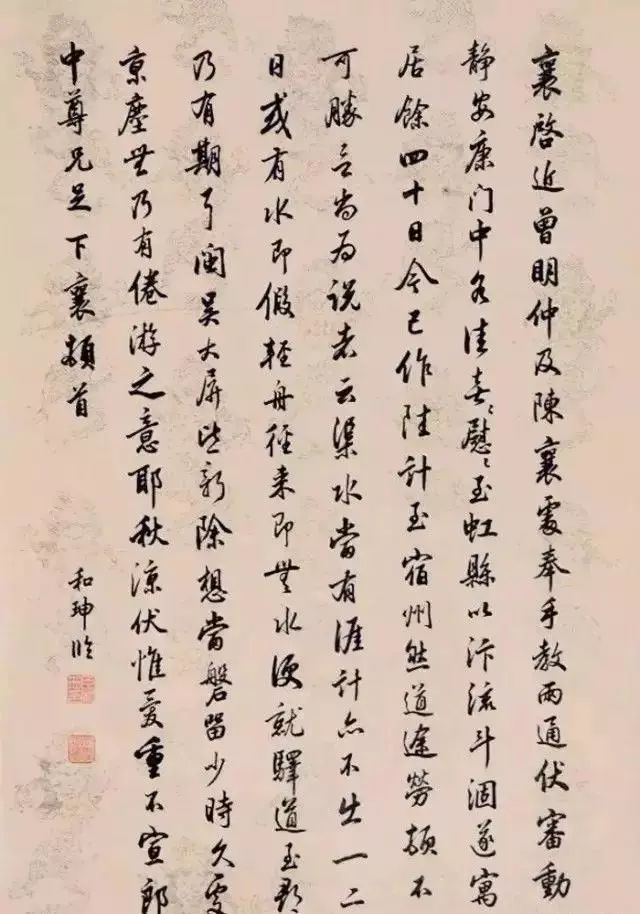 襄啓近曾明仲及陳襄處奉手教兩通伏審動
靜安康门中各佳喜〻慰〻至虹縣以汴流斗涸遂寓
居餘四十日今已作陸計至宿州然道途勞頓不
可勝言尚為说者云渠水當有涯計亦不出一二
日或有水即假輕舟徑来即無水便就驛道至都
乃有期耳闽吳大屏皆新除想當磐留少時久處
京塵無乃有倦游之意耶秋涼伏惟愛重不宣郎
中尊兄足下襄頓首
和珅臨